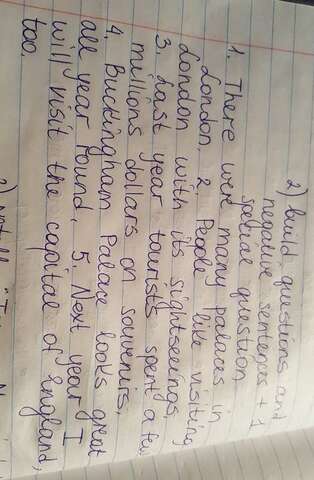 2) build questions and
negative sentences + 1
special question
1. There were many palaces in
London. 2. People like visiting
London with its sightseeings.
3. Last year tourists spent a few
millions dollars on souvenirs.
4. Buckingham Palace looks great
all year round. 5. Next year I
will visit the capital of England,
too.